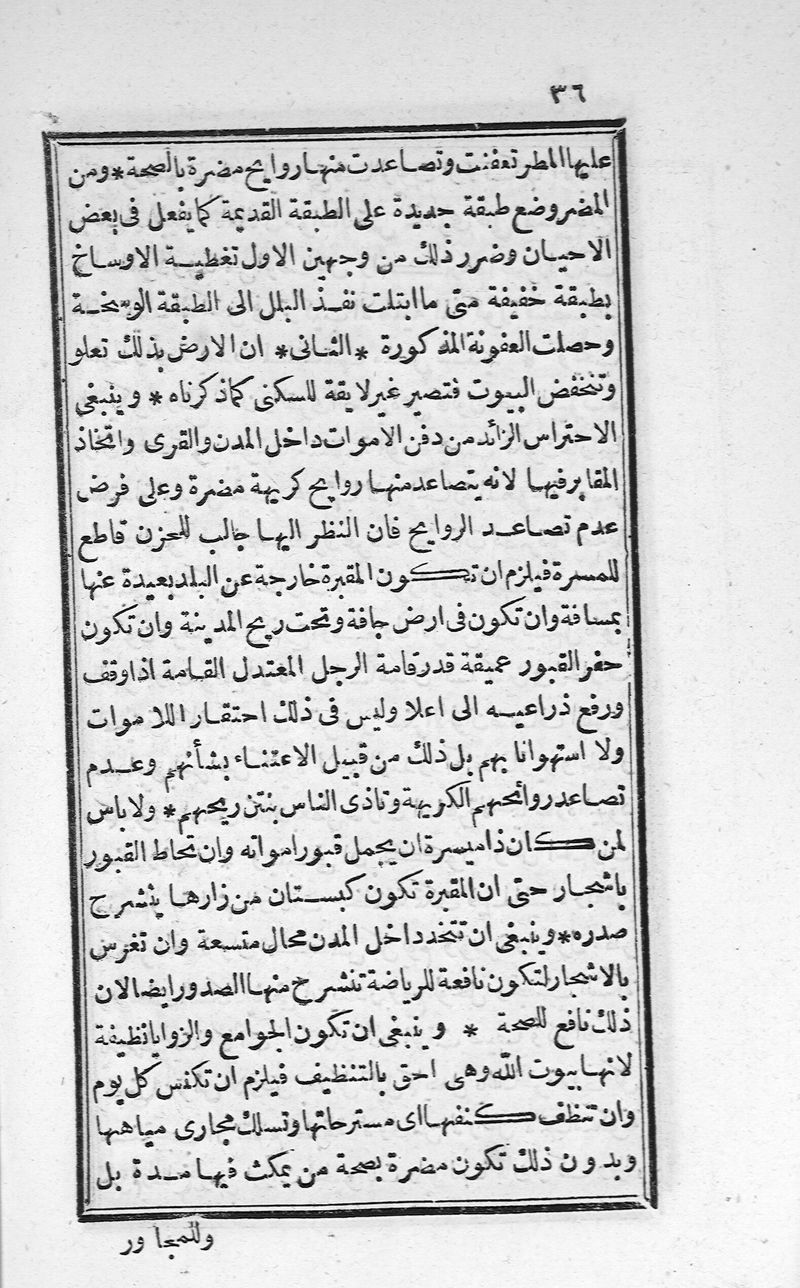 ٣٦
عليها المطر تعفنت وتصاعدت منها روايح مضرة بالصحة * ومن
المضر وضع طبقة جديدة على الطبقة القديمة كما يفعل فى بعض
الاحيان وضرر ذلك من وجهين الاول تغطية الاوساخ
بطبقة خفيفة متى ما ابتلت نفذ البلل الى الطبقة الوسخة
وحصلت العفونة المذكورة * الثانى * ان الارض بذلك تعلو
وتنخفض البيوت فتصير غير لايقة للسكنى كما ذكرناه * وينبغى
الاحتراس الزائد من دفن الاموات داخل المدن والقرى واتخاذ
المقابر فيها لانه يتصاعد منها روايح كريهة مضرة وعلى فرض
عدم تصاعد الروايح فان النظر اليها جالب للحزن قاطع
للمسرة فيلزم ان تكون المقبرة خارجة عن البلد بعيدة عنها
بمسافة وان تكون فى ارض جافة وتحت ريح المدينة وان تكون
حفر القبور عميقة قدر قامة الرجل المعتدل القامة اذا وقف
ورفع ذراعيه الى اعلا وليس فى ذلك احتقار اللاموات
ولا استهوانا بهم بل ذلك من قبيل الاعتناء بشأنهم وعدم
تصاعد روائحهم الكريهة وتاذى الناس بنتن ريحهم * ولا باس
لمن كان ذا ميسرة ان يجمل قبور امواته وان تحاط القبور
باشجار حتى ان المقبرة تكون كبستان من زارها ينشرح
صدره * وينبغى ان تتخذ داخل المدن محال متسعة وان تغرس
بالاشجار لتكون نافعة للرياضة تنشرح منها الصدور ايضا لان
ذلك نافع للصحة * وينبغى ان تكون الجوامع والزوايا نظيفة
لانها بيوت الله وهى احق بالتنظيف فيلزم ان تكنس كل يوم
وان تنظف كنفها اى مسترحاتها وتسلك مجارى مياهها
وبدون ذلك تكون مضرة بصحة من يمكث فيها مدة بل
وللمجاور